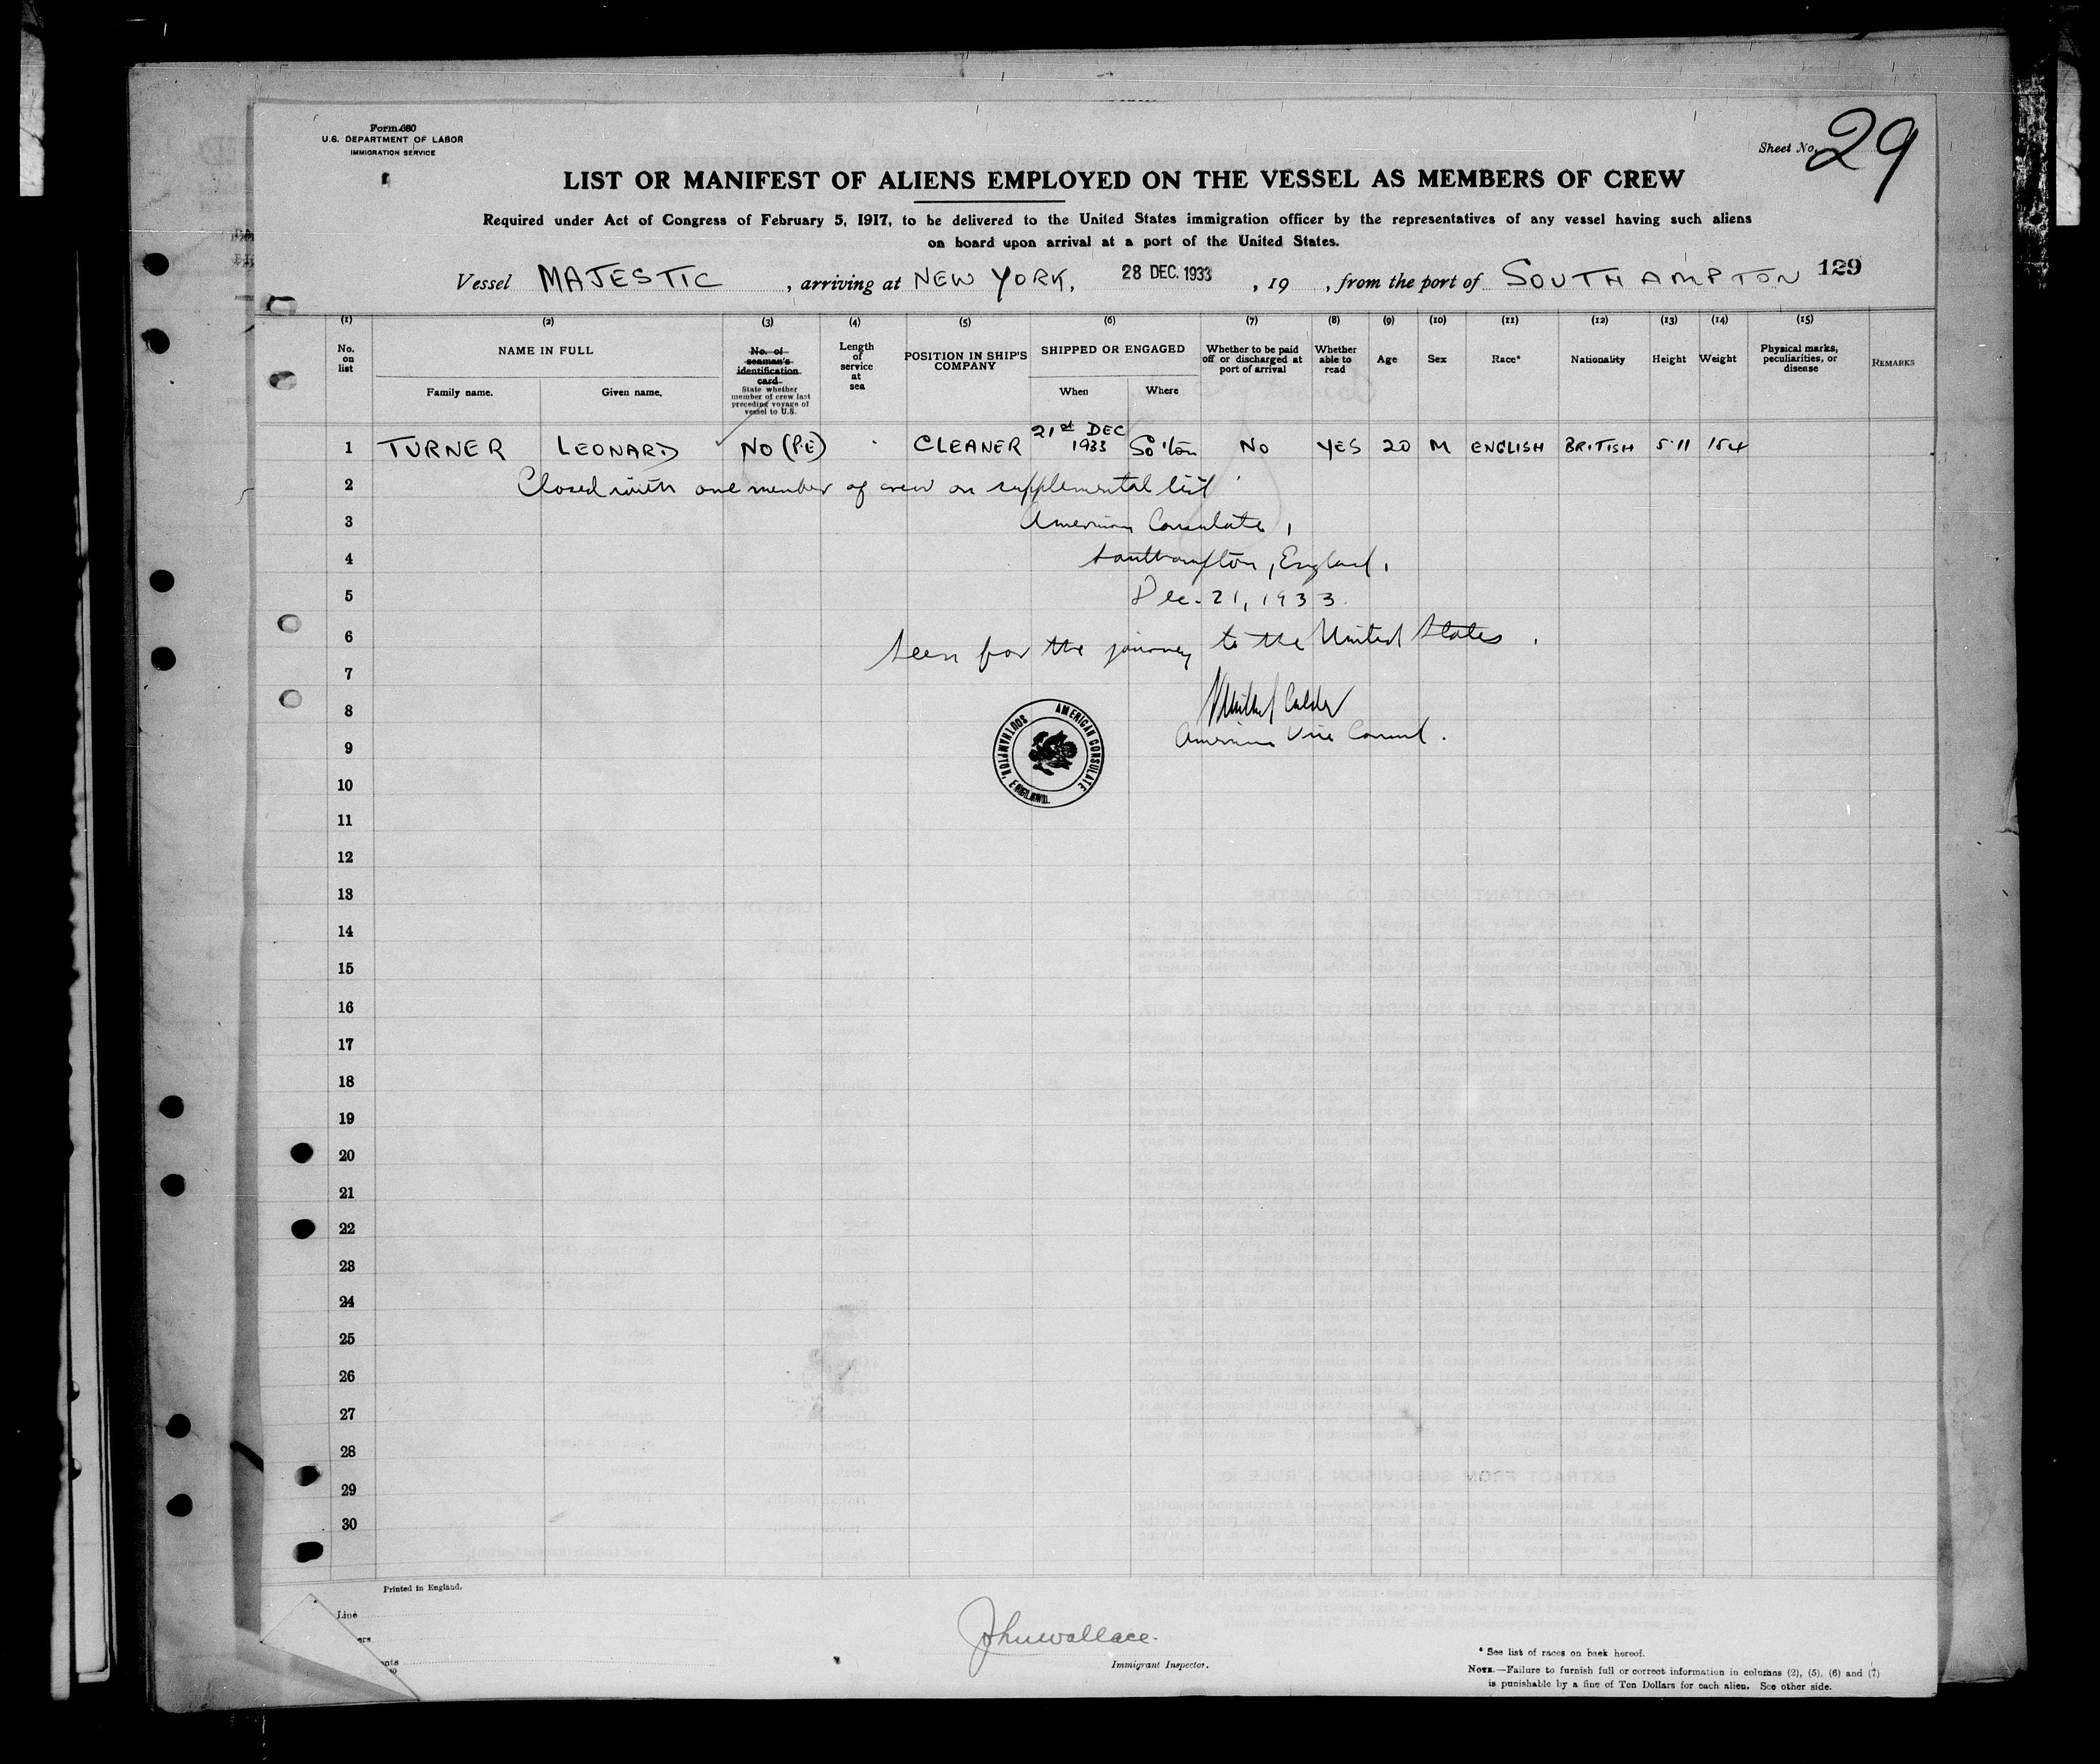 Form 680
U.S. DEPARTMENT OF LABOR
IMMIGRATION SERVICE
Sheet No. 29
LIST OR MANIFEST OF ALIENS EMPLOYED ON THE VESSEL AS MEMBERS OF CREW
Required under Act of Congress of February 5, 1917, to be delivered to the United States immigration officer by the representatives of any vessel having such aliens
on board upon arrival at a port of the United States.
Vessel MAJESTIC, arriving at NEW YORK, 28 DEC. 1933, 19 , from the port of SOUTHAMPTON 129
(1) (2) (3) (4) (5) (6) (7) (8) (9) (10) (11) (12) (13) (14) (15)
No. on list
NAME IN FULL
Family name. Given name.
No. of seaman's identification card
State whether member of crew last preceding voyage of vessel to U.S.
Length of service at sea
POSITION IN SHIP'S COMPANY
SHIPPED OR ENGAGED
When Where
Whether to be paid off or discharged at port of arrival
Whether able to read
Age
Sex
Race*
Nationality
Height
Weight
Physical marks, peculiarities, or disease
REMARKS
1 TURNER LEONARD NO (P.E) CLEANER 21st DEC 1933 So'ton NO YES 20 M ENGLISH BRITISH 5·11 154
2 Closed with one member of crew on supplemental list
3 American Consulate,
4 Southampton, England,
5 Dec. 21, 1933.
6 Seen for the journey to the United States.
7
8 Calder
9 American Vice Consul.
AMERICAN CONSULATE
SOUTHAMPTON, ENGLAND.
10
11
12
13
14
15
16
17
18
19
20
21
22
23
24
25
26
27
28
29
30
Printed in England.
Line
John Wallace.
Immigrant Inspector.
* See list of races on back hereof.
NOTE.—Failure to furnish full or correct information in columns (2), (5), (6) and (7)
is punishable by a fine of Ten Dollars for each alien. See other side.